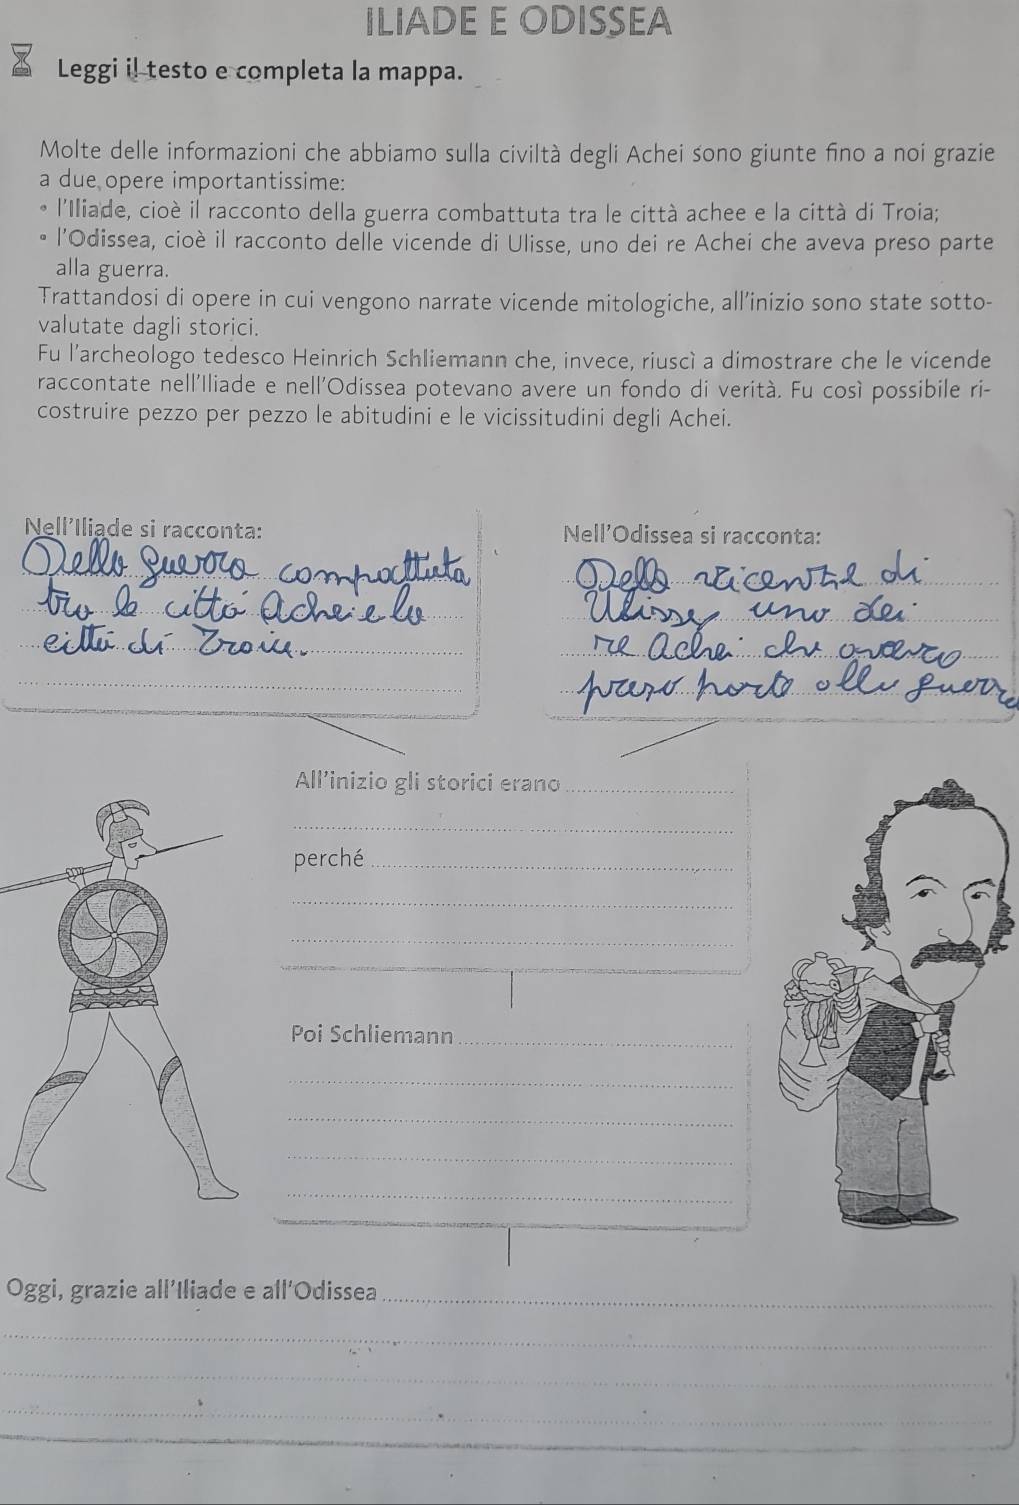 ILIADE E ODISSEA
Leggi il testo e completa la mappa.
Molte delle informazioni che abbiamo sulla civiltà degli Achei sono giunte fino a noi grazie
a due opere importantissime:
• l'Iliade, cioè il racconto della guerra combattuta tra le città achee e la città di Troia;
• l'Odissea, cioè il racconto delle vicende di Ulisse, uno dei re Achei che aveva preso parte
alla guerra.
Trattandosi di opere in cui vengono narrate vicende mitologiche, all'inizio sono state sotto-
valutate dagli storici.
Fu l'archeologo tedesco Heinrich Schliemann che, invece, riuscì a dimostrare che le vicende
raccontate nell'Iliade e nell'Odissea potevano avere un fondo di verità. Fu così possibile ri-
costruire pezzo per pezzo le abitudini e le vicissitudini degli Achei.
Nell'Iliade si racconta:
Della guerra compattuta
tra le città achei e la
città di Troia.
Nell'Odissea si racconta:
Della vicente di
Ulisse, uno dei
re achei che
preso parte alla guerra
All'inizio gli storici erano
perché
Poi Schliemann
Oggi, grazie all'Iliade e all'Odissea